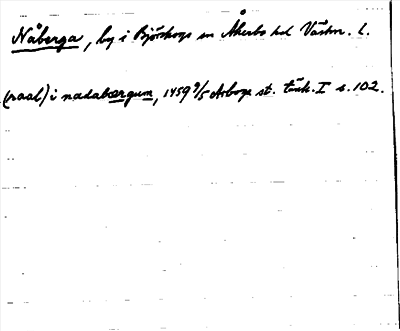 Nåberga, by i Björskogs sn Åkerbo hd Västm. l.
(raal) i nadabærgum, 1459 9/5 Arboga st. tänk. I s. 102.